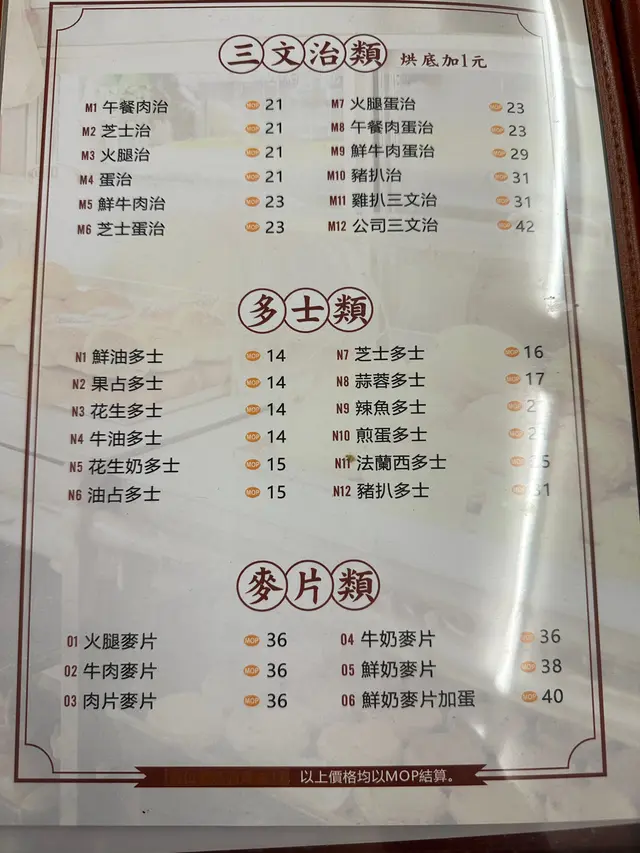 三文治類 烘底加1元
M1 午餐肉治 MOP 21
M2 芝士治 MOP 21
M3 火腿治 MOP 21
M4 蛋治 MOP 21
M5 鮮牛肉治 MOP 23
M6 芝士蛋治 MOP 23
M7 火腿蛋治 MOP 23
M8 午餐肉蛋治 MOP 23
M9 鮮牛肉蛋治 MOP 29
M10 豬扒治 MOP 31
M11 雞扒三文治 MOP 31
M12 公司三文治 MOP 42
多士類
N1 鮮油多士 MOP 14
N2 果占多士 MOP 14
N3 花生多士 MOP 14
N4 牛油多士 MOP 14
N5 花生奶多士 MOP 15
N6 油占多士 MOP 15
N7 芝士多士 MOP 16
N8 蒜蓉多士 MOP 17
N9 辣魚多士 MOP
N10 煎蛋多士 MOP
N11 法蘭西多士
N12 豬扒多士
麥片類
01 火腿麥片 MOP 36
02 牛肉麥片 MOP 36
03 肉片麥片 MOP 36
04 牛奶麥片 MOP 36
05 鮮奶麥片 MOP 38
06 鮮奶麥片加蛋 MOP 40
以上價格均以MOP結算。